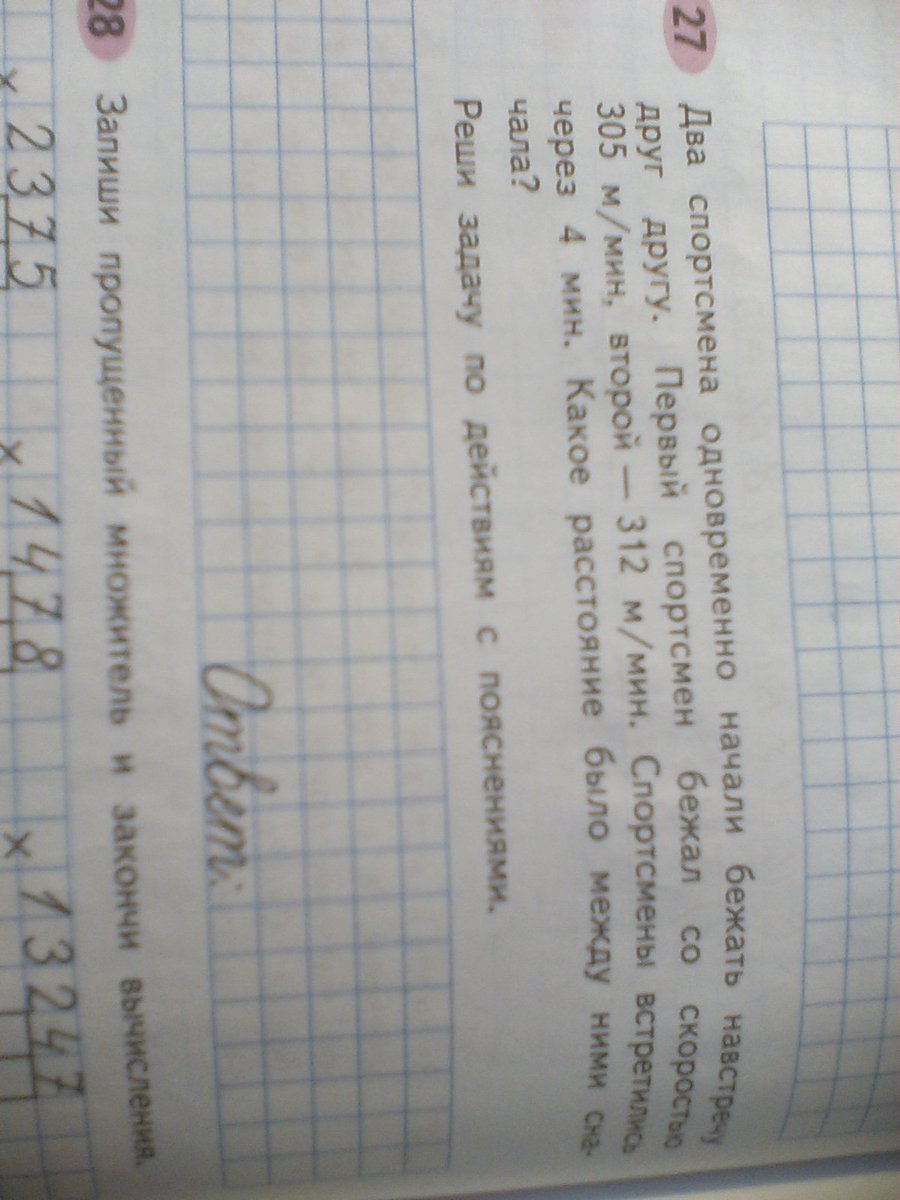 27 Два спортсмена одновременно начали бежать навстречу
друг другу. Первый спортсмен бежал со скоростью
305 м/мин, второй — 312 м/мин. Спортсмены встретились
через 4 мин. Какое расстояние было между ними сна-
чала?
Реши задачу по действиям с пояснениями.
Ответ:
28 Запиши пропущенный множитель и закончи вычисления.
× 2375 × 1478 × 13247